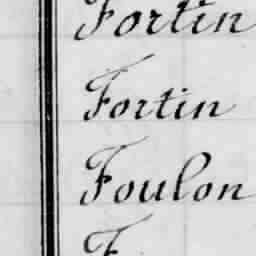 Fortin
Fortin
Foulon
F